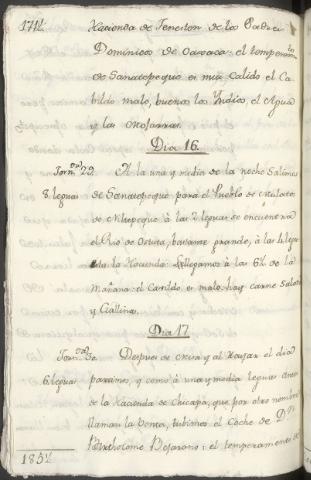 171½ Hacienda de Teneston de los Padres
Dominicos de Oaxaca: el temperamto
de Sanatepeque es mui calido el Ca-
bildo malo, buenos los Yndios, el Agua
y las Mojarras.
Dia 16.
Jorn.da 29. A la una y media de la noche Salimos
8 leguas de Sanatepeque para el Pueblo de Mulatos
de Niltepeque à las 2 leguas se encuentra
el Rio de Ostuta, bastante grande, à las
la Hacienda: llegamos à las 6½ de la
Mañana: el Cavildo es malo: hay carne Salada
y Gallinas.
Dia 17.
Jorn.da 30. Despues de Misa y al Rayar el dia
6 leguas partimos, y como à una y media leguas antes
de la Hacienda de Chicapa, que por otro nombre
llaman la Venta, tubimos el Coche de Dn
Bartholome Bejarano: el temperamento de
185½